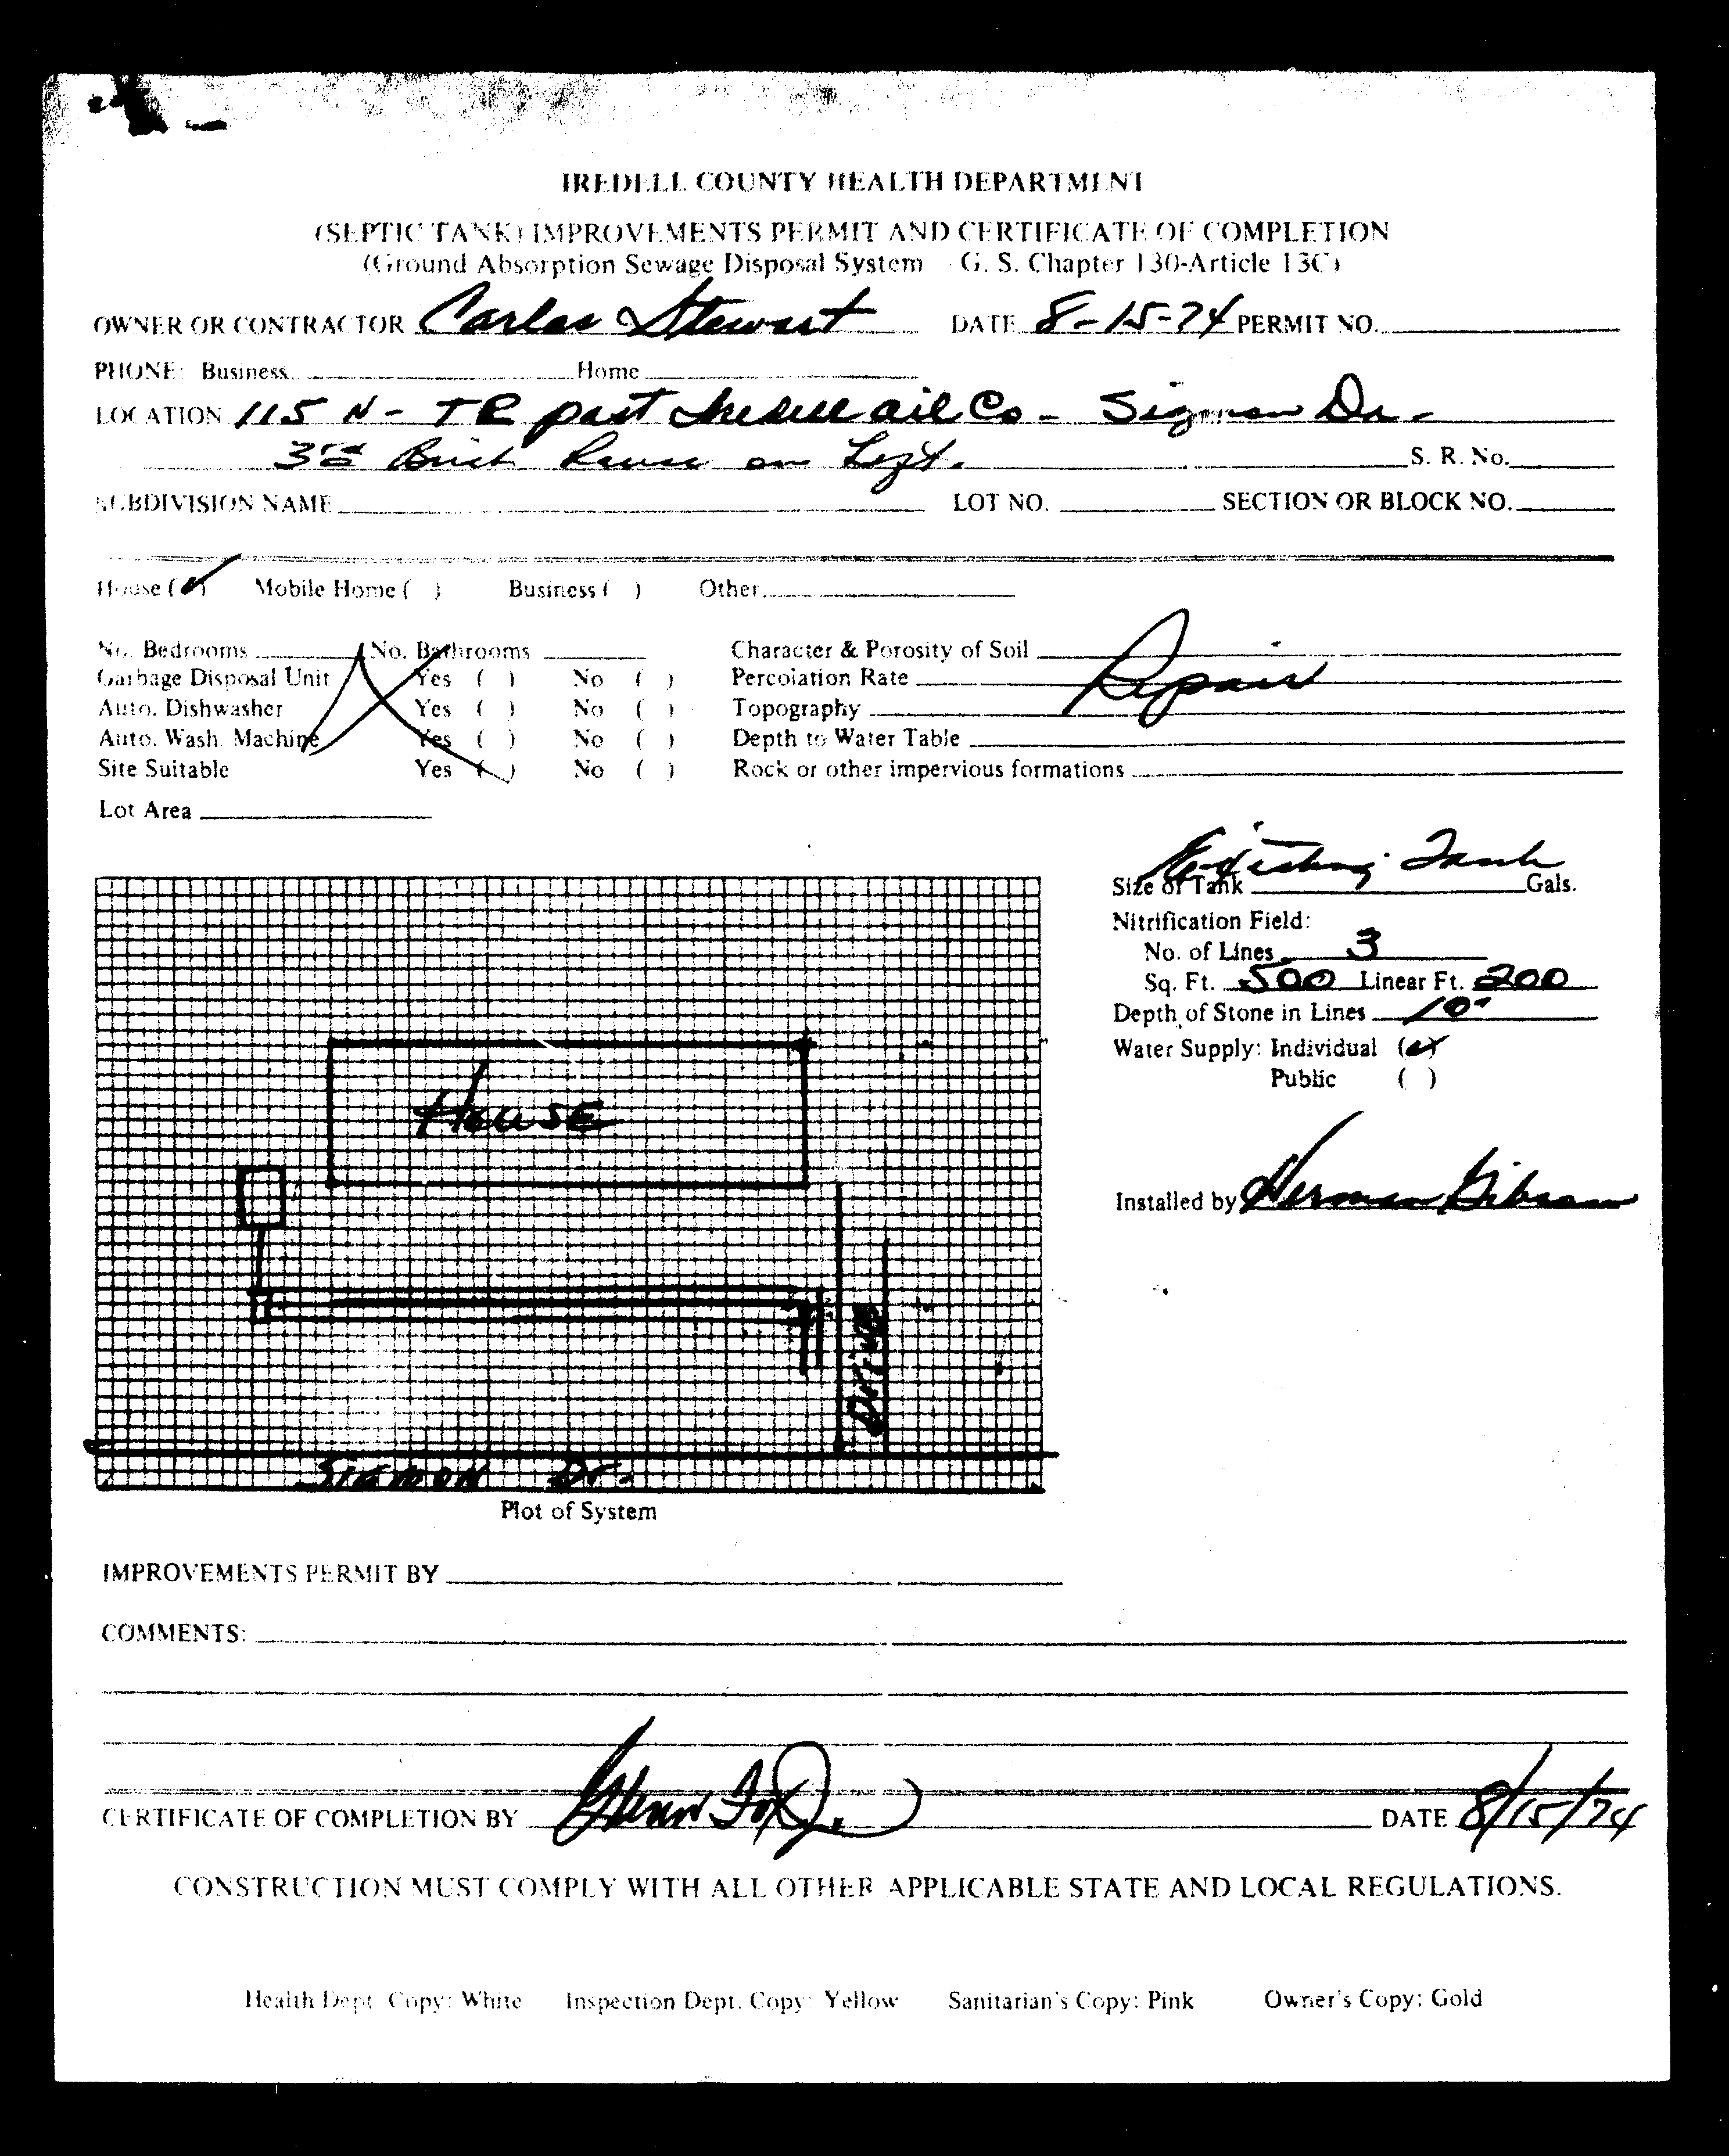 IREDELL COUNTY HEALTH DEPARTMENT
(SEPTIC TANK) IMPROVEMENTS PERMIT AND CERTIFICATE OF COMPLETION
(Ground Absorption Sewage Disposal System - G. S. Chapter 130-Article 13C)
OWNER OR CONTRACTOR Carlos Stewart DATE 8-15-74 PERMIT NO.
PHONE: Business Home
LOCATION 115 N - TR past Iredell oil Co - Sigmon Dr.
3rd Brick house on Left. S. R. No.
SUBDIVISION NAME LOT NO. SECTION OR BLOCK NO.
House (✓) Mobile Home ( ) Business ( ) Other
No. Bedrooms No. Bathrooms Character & Porosity of Soil Repair
Garbage Disposal Unit Yes ( ) No ( ) Percolation Rate
Auto. Dishwasher Yes ( ) No ( ) Topography
Auto. Wash Machine Yes ( ) No ( ) Depth to Water Table
Site Suitable Yes ( ) No ( ) Rock or other impervious formations
Lot Area
Size of Tank Existing Tank Gals.
Nitrification Field:
No. of Lines 3
Sq. Ft. 500 Linear Ft. 200
Depth of Stone in Lines 10"
Water Supply: Individual (✓)
Public ( )
Installed by Herman Gibson
HOUSE
Drive
SIGMON Dr.
Plot of System
IMPROVEMENTS PERMIT BY
COMMENTS:
CERTIFICATE OF COMPLETION BY Glenn Fox Jr. DATE 8/15/74
CONSTRUCTION MUST COMPLY WITH ALL OTHER APPLICABLE STATE AND LOCAL REGULATIONS.
Health Dept. Copy: White Inspection Dept. Copy: Yellow Sanitarian's Copy: Pink Owner's Copy: Gold